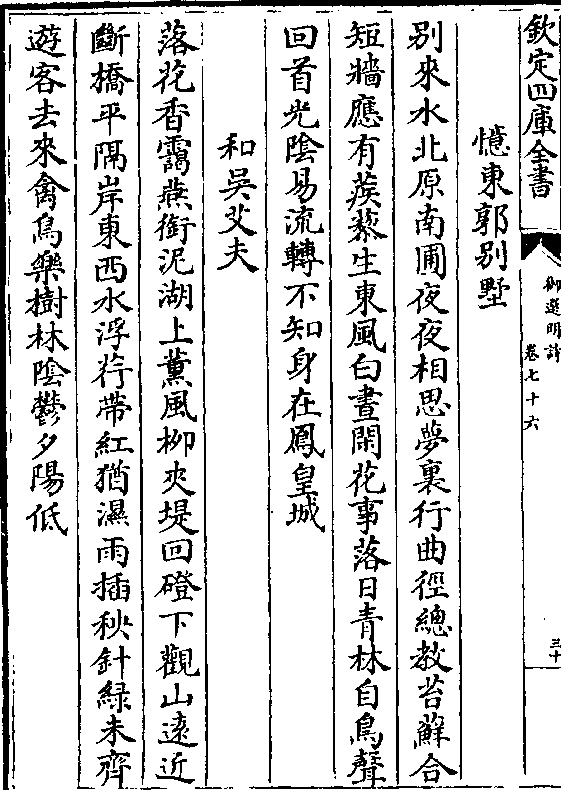 欽定四庫全書
御選明詩
卷七十六
三十
憶東郭别墅
别來水北原南圃夜夜相思夢裏行曲徑總教苔蘚合
短牆應有蒺藜生東風白晝閑花事落日青林自鳥聲
回首光陰易流轉不知身在鳳皇城
和吳艾夫
落花香靄燕銜泥湖上薫風柳夾堤回磴下觀山逺近
斷橋平隔岸東西水浮荇帶紅猶濕雨插秧針緑未齊
遊客去來禽鳥樂樹林陰鬱夕陽低